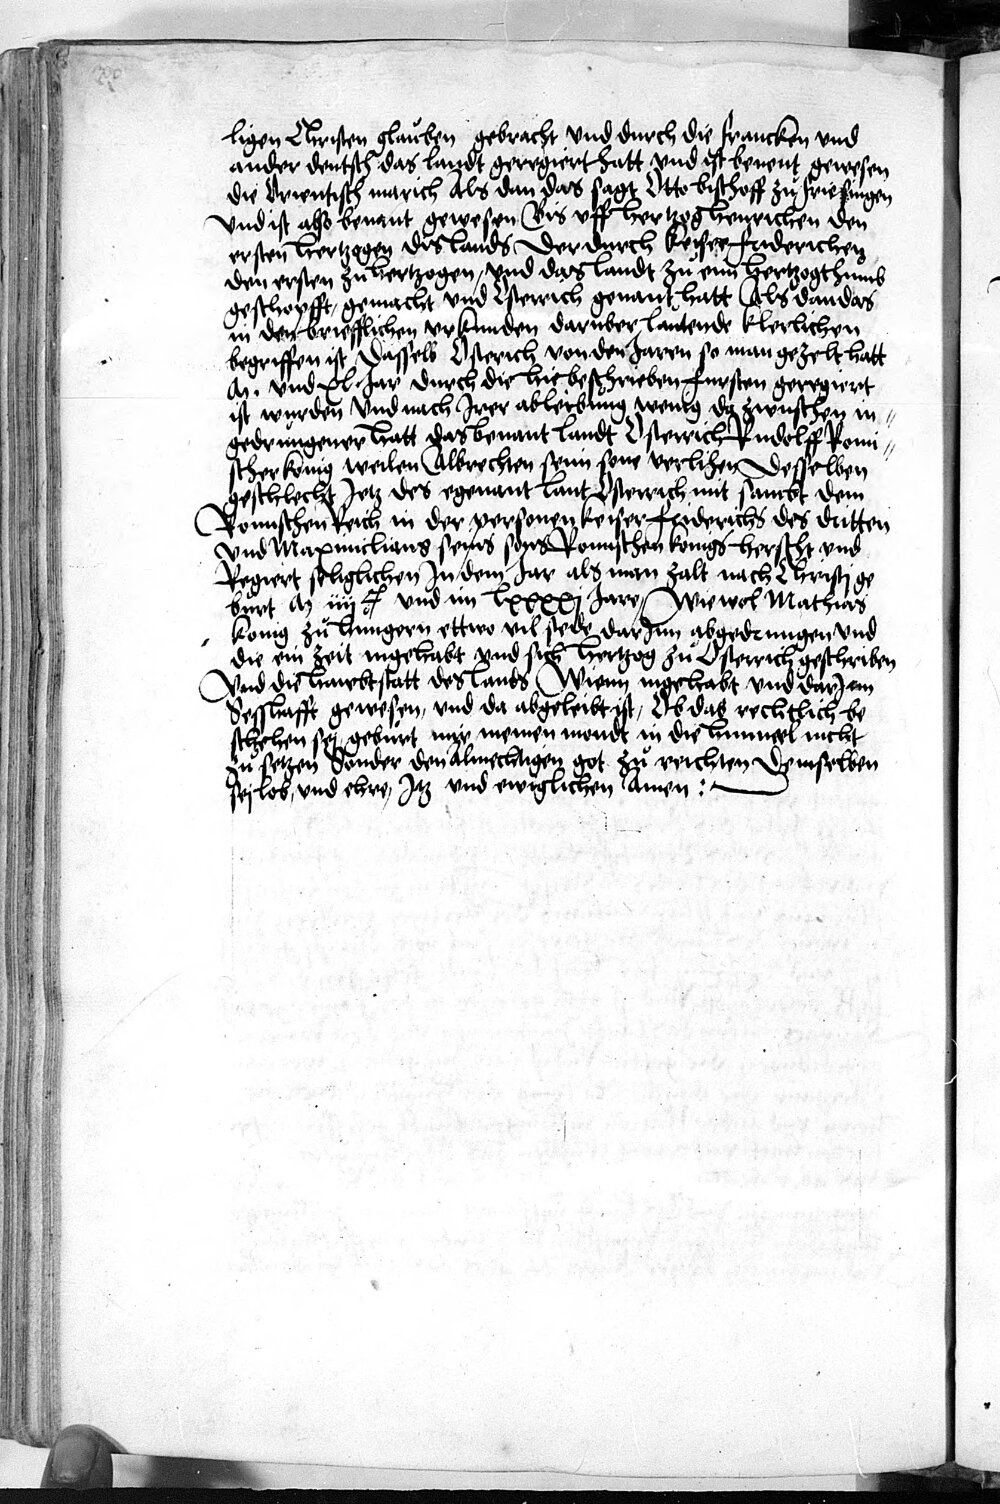 ligen Christen glauben gebracht vnd durch die francken vnd
ander deutsch das landt geregiert hatt vnd ist benent gewesen
die Orientisch march Als dan das sagt Otto bischoff zu friesingen
vnd ist also benant gewesen Bis vff hertzog henrichen den
ersten hertzogen dis lands Der durch keiser friderichen
den ersten zu hertzogen, vnd das landt zu eim hertzogthumb
geschopfft, gemacht vnd Osterrich genant hatt Als dan das
in den briefflichen vrkunden daruber lautende klerlichen
begriffen ist Dasselb Osterich von den Jaren so man gezelt hatt
M. vnd XL Jar durch die hie beschrieben fursten geregiert
ist wurden vnd nach Irer ableibung wenig da zwuschen in
gedrungener hatt das benant landt Osterrich Rudolff Romi
scher konig weilen Albrechten seim sone verlihen Desselben
geschlecht Jetz des egenant lant Osterrich mit sambt dem
Romischen Reich in der personen keiser friderichs des dritten
vnd Maximilians seins sons Romischen konigs herscht vnd
Regiert seliglichen In dem Jar als man zalt nach Christj ge
burt M iiij C vnd im Lxxxxj Jare, Wie wol Mathias
konig zu hungern ettwo vil stede dar Inn abgedrungen vnd
die ein zeit ingehabt vnd sich hertzog zu Osterrich geschriben
vnd die haubtstatt des lands Wienn ingehabt vnd dar Inn
Sesshafft gewesen, vnd da abgeleibt ist, Ob das rechtlich be
schehen sei, geburt mir meinen mondt in die himmel nicht
zu setzen Sonder den Almechtigen got zu reichten Demselben
sej lob, vnd ehre, Jtz vnd ewiglichen Amen :